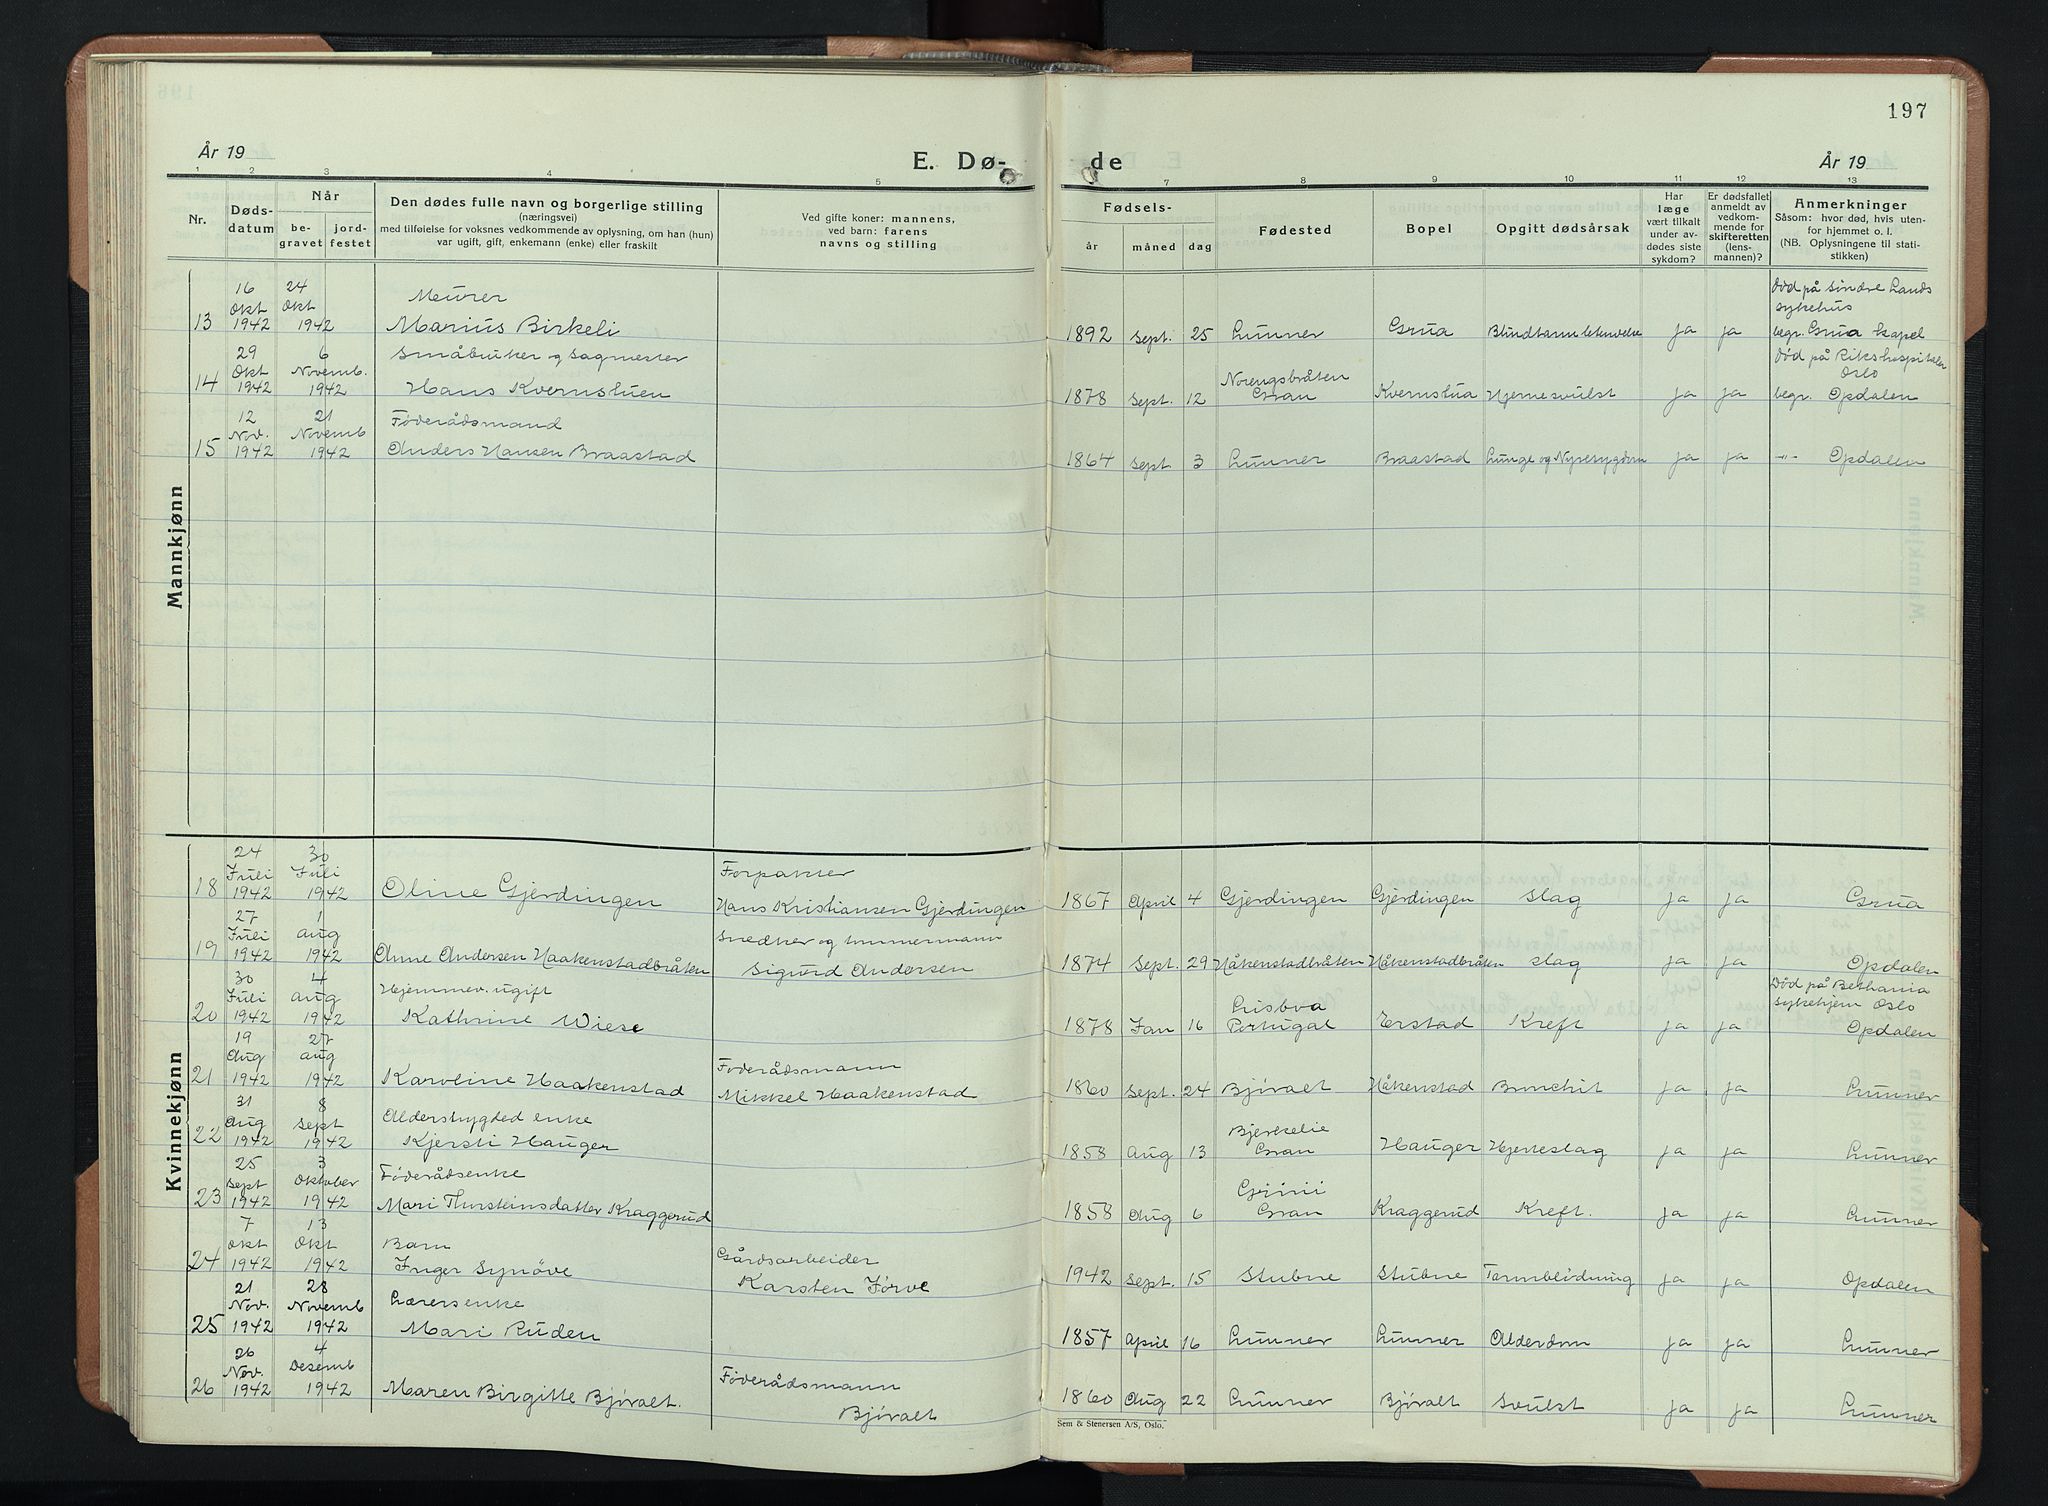 197
År 19
E. Dø-
de
År 19
1 2 3 4 5 7 8 9 10 11 12 13
Nr.
Døds-
datum
Når
be-
gravet
jord-
festet
Den dødes fulle navn og borgerlige stilling
(næringsvei)
med tilføielse for voksnes vedkommende av oplysning, om han (hun)
var ugift, gift, enkemann (enke) eller fraskilt
Ved gifte koner: mannens,
ved barn: farens
navns og stilling
Fødsels-
år måned dag
Fødested
Bopel
Opgitt dødsårsak
Har
læge
vært tilkalt
under av-
dødes siste
sykdom?
Er dødsfallet
anmeldt av
vedkom-
mende for
skifteretten
(lens-
mannen)?
Anmerkninger
Såsom: hvor død, hvis uten-
for hjemmet o. l.
(NB. Oplysningene til stati-
stikken)
Mannkjønn
16 24 Død på Søndre Lands
Okt Okt Meurer sykehus
13 1942 1942 Marius Birkeli 1892 Sept. 25 Lunner Grua Blindtarmbetennelse ja ja begr. Grua kapel
29 6 Småbruker og Sagmester Død på Rikshospitalet
Okt Novemb. Norengsbråten Oslo
14 1942 1942 Hans Kvernstuen 1878 Sept. 12 Gran Kvernstua Hjernesvulst ja ja begr. Opdalen
12 21 Føderådsmand
Nov. Novemb
15 1942 1942 Anders Hansen Braastad 1864 Sept 3 Lunner Braastad Lunge og Nyresygdom ja ja -"- Opdalen
Kvinnekjønn
24 30 Forpakter
Juli Juli
18 1942 1942 Oline Gjerdingen Hans Kristiansen Gjerdingen 1867 April 4 Gjerdingen Gjerdingen Slag ja ja Grua
27 1 Snedker og tømmermann
Juli aug
19 1942 1942 Anne Andersen Haakenstadbråten Sigurd Andersen 1874 Sept. 29 Håkenstadbråten Håkenstadbråten Slag ja ja Opdalen
30 4 Hjemmev. ugift Død på Bethania
Juli aug Lisboa sykehjem Oslo
20 1942 1942 Kathrine Wiese 1878 Jan 16 Portugal Erstad Kreft ja ja Opdalen
19 27 Føderådsmann
Aug aug
21 1942 1942 Karoline Haakenstad Mikkel Haakenstad 1860 Sept. 24 Bjøralt Håkenstad Bronchit ja ja Lunner
31 8 Alderstrygded enke
Aug Sept Bjerkelie
22 1942 1942 Kjersti Hauger 1858 Aug 13 Gran Hauger Hjerteslag ja ja Lunner
25 3 Føderådsenke
Sept Oktober Grinii
23 1942 1942 Mari Thorsteinsdatter Kraggerud 1858 Aug 6 Gran Kraggerud Kreft. ja ja Lunner
7 13 Barn Gårdsarbeider
Okt Okt
24 1942 1942 Inger Synøve Karsten Jørve 1942 Sept. 15 Stubne Stubne Tarmblødning ja ja Opdalen
21 28 Lærersenke
Nov. Novemb
25 1942 1942 Mari Ruden 1857 April 16 Lunner Lunner Alderdom ja ja Lunner
26 4 Føderådsmann
Nov. Desemb
26 1942 1942 Maren Birgitte Bjøralt. Bjøralt 1860 Aug 22 Lunner Bjøralt Svulst ja ja Lunner
Sem & Stenersen A/S, Oslo.